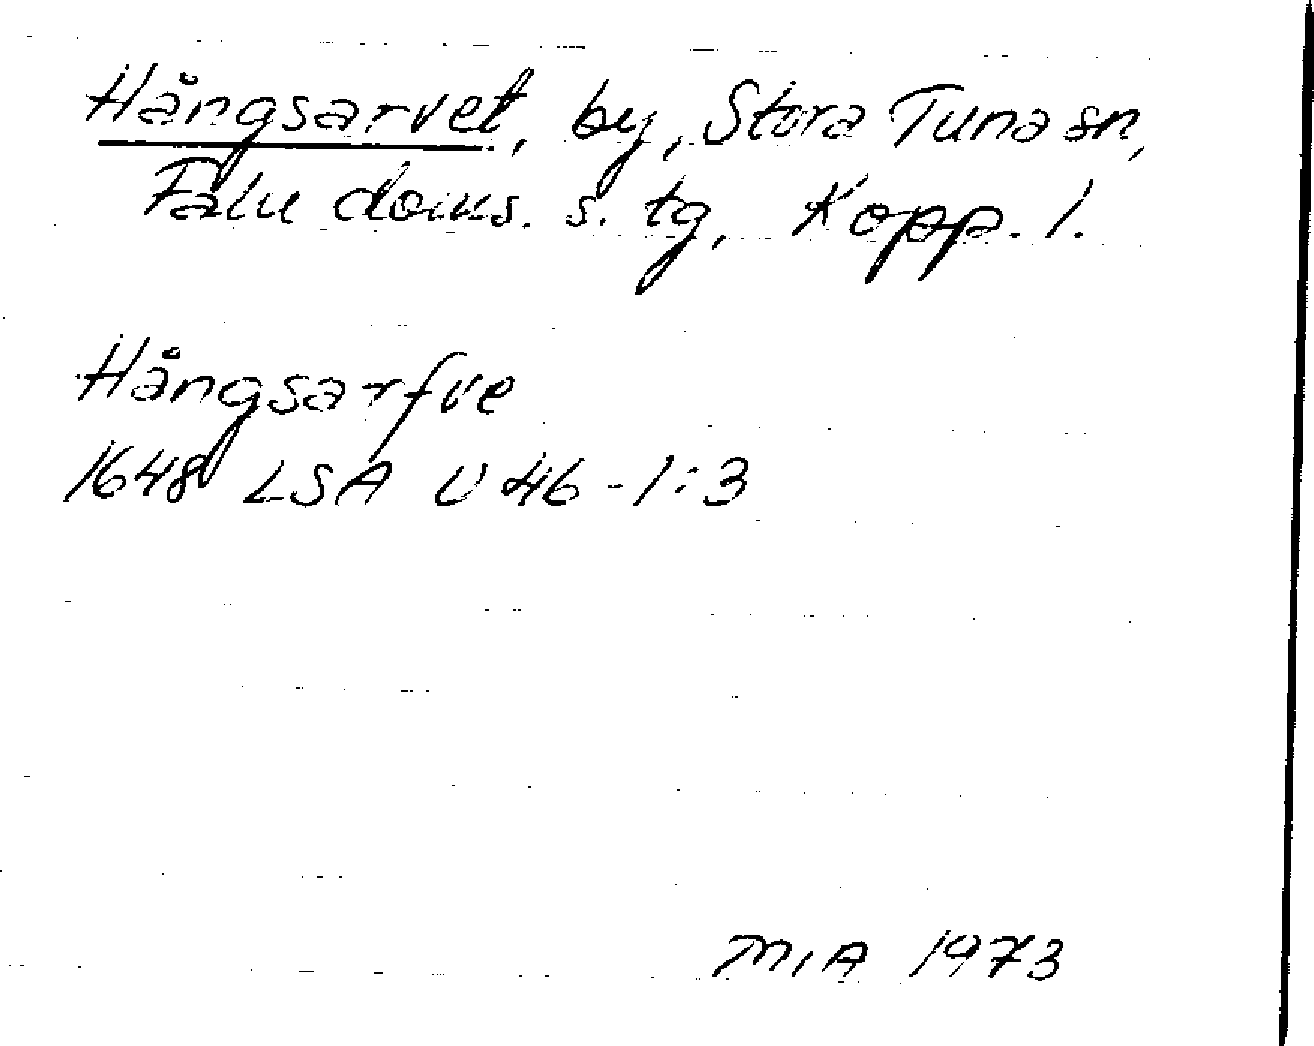 Hångsarvet, by, Stora Tuna sn,
Falu doms. s. tg, Kopp. l.
Hångsarfve
1648 LSA U 46-1:3
MIA 1973